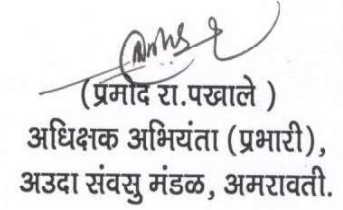 (प्रमोद रा.पखाले )
अधिक्षक अभियंता (प्रभारी),
अउदा संवसु मंडळ, अमरावती.